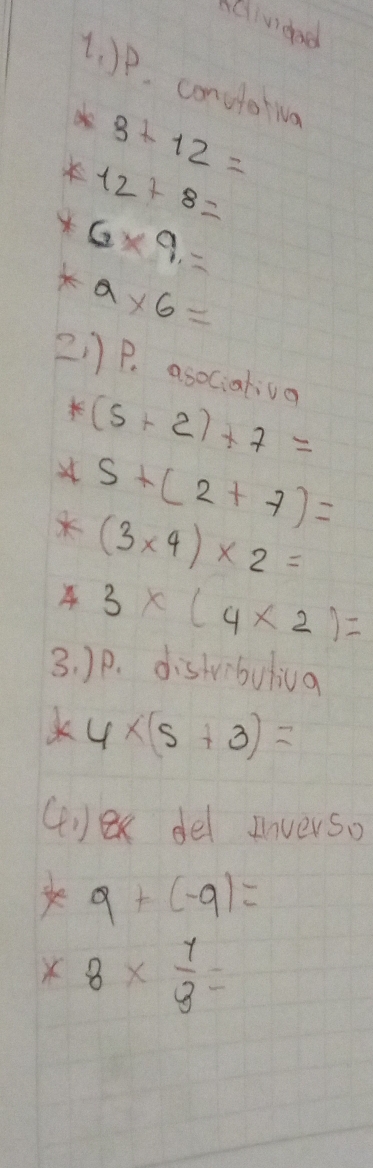 Actividad
1.) P. conutativa
* 8 + 12 =
* 12 + 8 =
* 6 × 9. =
* 9 × 6 =
2.) P. asociativa
* (5 + 2) + 7 =
* 5 + (2 + 7) =
* (3 × 4) × 2 =
* 3 × (4 × 2) =
3.) P. distributiva
* 4 × (5 + 3) =
4.) del Inverso
* 9 + (-9) =
* 8 × 1/8 =